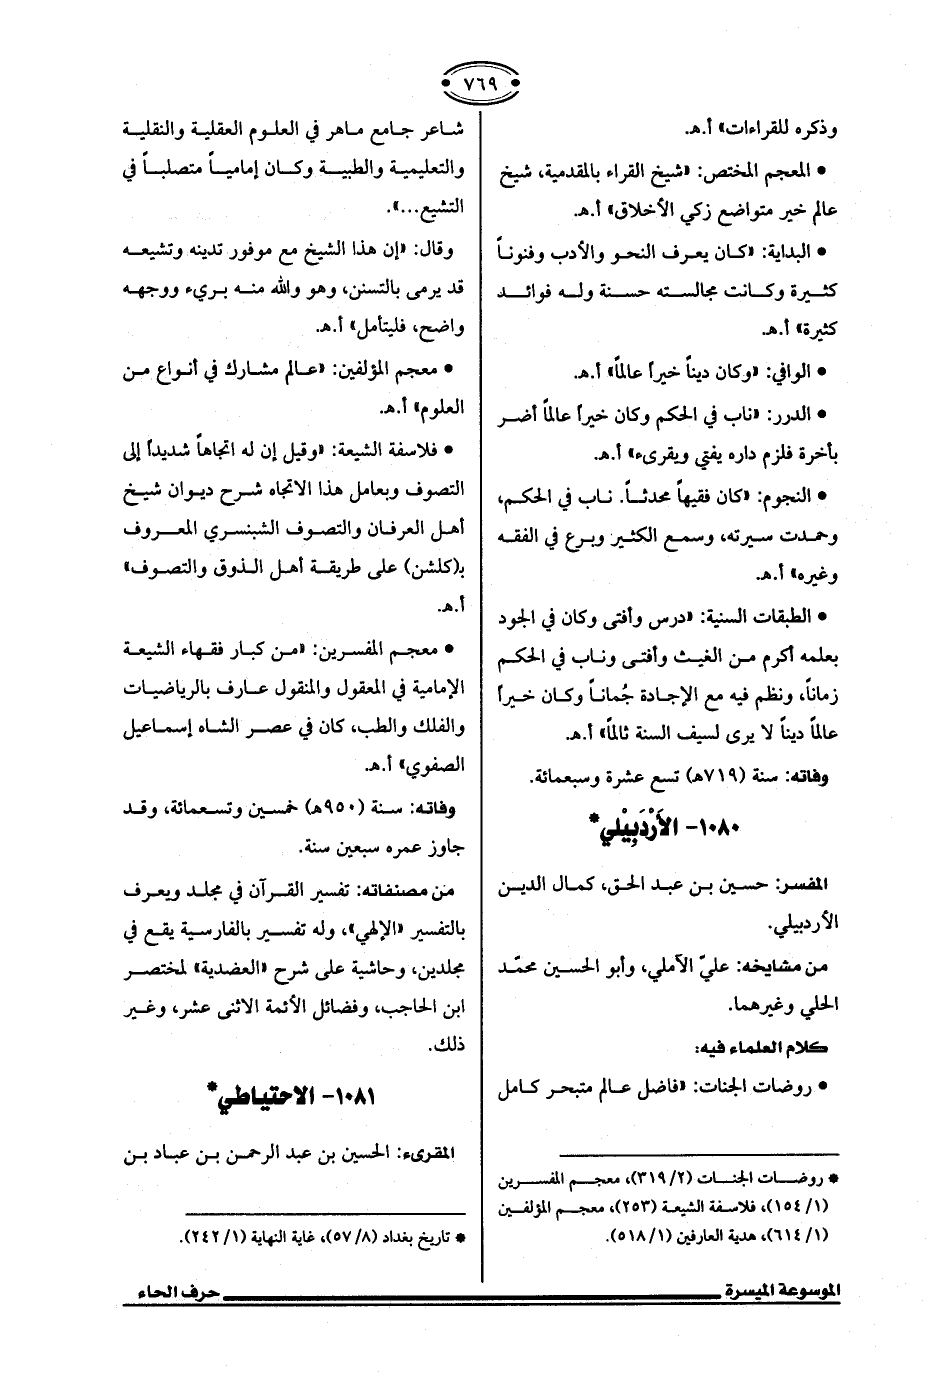 ٧٦٩
وذكره للقراءات» أ.هـ.
• المعجم المختص: «شيخ القراء بالمقدمية، شيخ
عالم خير متواضع زكي الأخلاق» أ.هـ.
• البداية: «كان يعرف النحو والأدب وفنوناً
كثيرة وكانت مجالسته حسنة وله فوائد
كثيرة» أ.هـ.
• الوافي: «وكان ديناً خيراً عالماً» أ.هـ.
• الدرر: «ناب في الحكم وكان خيراً عالماً أضر
بأخرة فلزم داره يفتي ويقرىء» أ.هـ.
• النجوم: «كان فقيهاً محدثاً. ناب في الحكم،
وحمدت سيرته، وسمع الكثير وبرع في الفقه
وغيره» أ.هـ.
• الطبقات السنية: «درس وأفتى وكان في الجود
بعلمه أكرم من الغيث وأفتى وناب في الحكم
زماناً، ونظم فيه مع الإجادة جُماناً وكان خيراً
عالماً ديناً لا يرى لسيف السنة ثالماً» أ.هـ.
وفاته: سنة (٧١٩هـ) تسع عشرة وسبعمائة.
١٠٨٠- الأَرْدَبِيْلي*
المفسر: حسين بن عبد الحق، كمال الدين
الأردبيلي.
من مشايخه: عليّ الآملي، وأبو الحسين محمّد
الحلي وغيرهما.
كلام العلماء فيه:
• روضات الجنات: «فاضل عالم متبحر كامل
* روضات الجنات (٣١٩/٢)، معجم المفسرين
(١٥٤/١)، فلاسفة الشيعة (٢٥٣)، معجم المؤلفين
(٦١٤/١)، هدية العارفين (٥١٨/١).
شاعر جامع ماهر في العلوم العقلية والنقلية
والتعليمية والطبية وكان إمامياً متصلباً في
التشيع...».
وقال: «إن هذا الشيخ مع موفور تدينه وتشيعه
قد يرمى بالتسنن، وهو والله منه بريء ووجهه
واضح، فليتأمل» أ.هـ.
• معجم المؤلفين: «عالم مشارك في أنواع من
العلوم» أ.هـ.
• فلاسفة الشيعة: «وقيل إن له اتجاهاً شديداً إلى
التصوف وبعامل هذا الاتجاه شرح ديوان شيخ
أهل العرفان والتصوف الشبنسري المعروف
بـ(كلشن) على طريقة أهل الذوق والتصوف»
أ.هـ.
• معجم المفسرين: «من كبار فقهاء الشيعة
الإمامية في المعقول والمنقول عارف بالرياضيات
والفلك والطب، كان في عصر الشاه إسماعيل
الصفوي» أ.هـ.
وفاته: سنة (٩٥٠هـ) خمسين وتسعمائة، وقد
جاوز عمره سبعين سنة.
من مصنفاته: تفسير القرآن في مجلد ويعرف
بالتفسير «الإلهي»، وله تفسير بالفارسية يقع في
مجلدين، وحاشية على شرح «العضدية» لمختصر
ابن الحاجب، وفضائل الأئمة الاثنى عشر، وغير
ذلك.
١٠٨١- الاحتياطي*
المقرىء: الحسين بن عبد الرحمن بن عباد بن
* تاريخ بغداد (٥٧/٨)، غاية النهاية (٢٤٢/١).
الموسوعة الميسرة
حرف الحاء